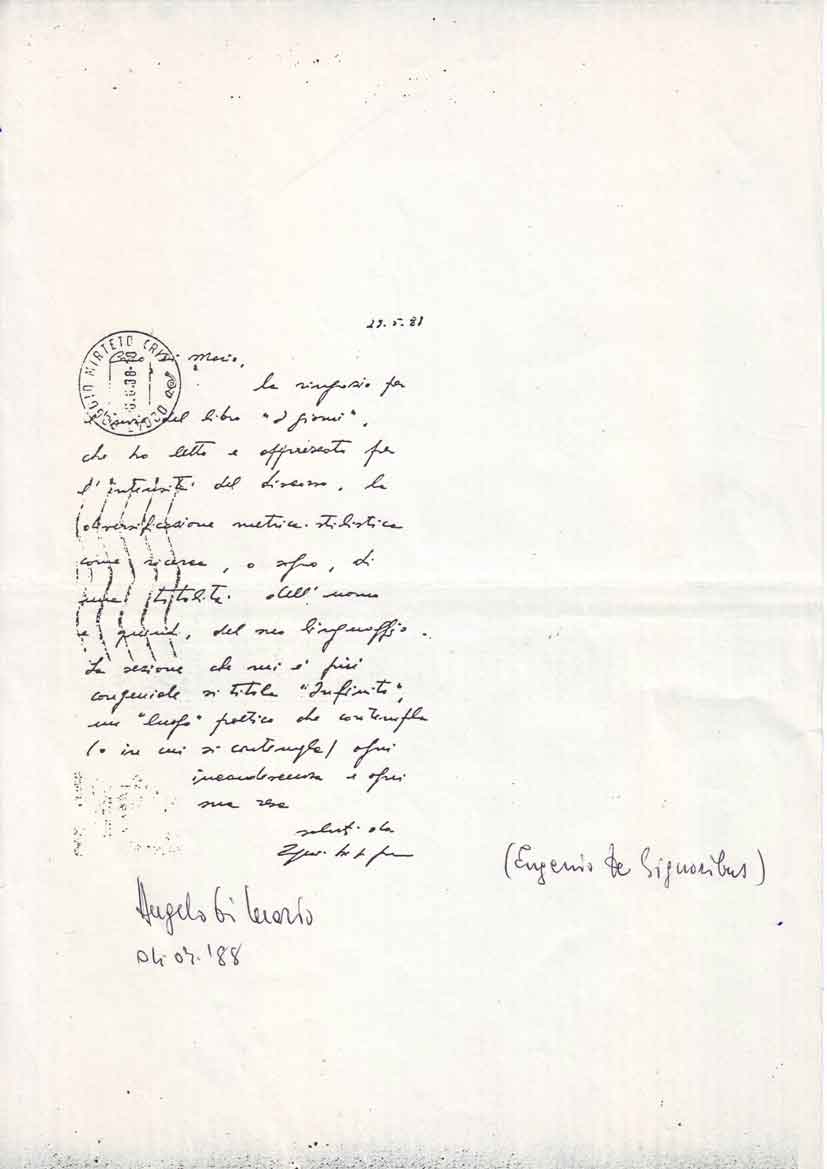 29.5.88
POGGIO MIRTETO
Caro Di Mario,
la ringrazio per
del libro "I giorni",
che ho letto e apprezzato per
l'intensità del discorso, la
diversificazione metrica-stilistica
come ricerca, o sogno, di
una totalità dell'uomo
e quindi, del suo linguaggio.
La sezione che mi è più
congeniale si titola "Infinito",
un "luogo" poetico che contempla
(o in cui si contempla) ogni
incandescenza e ogni
sua resa
saluti da
(Eugenio De Signoribus)
Angelo Di Mario
'88